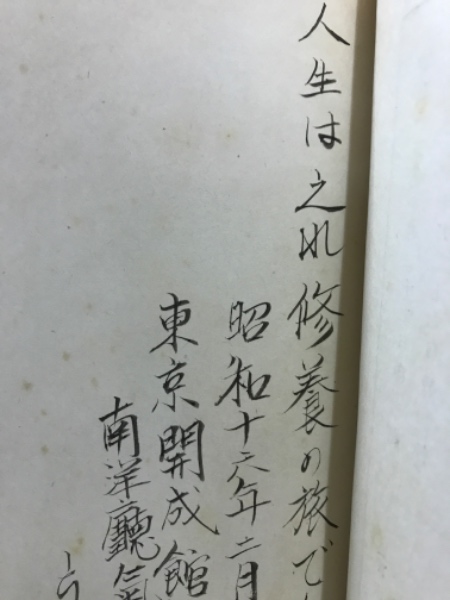 人生は之れ修養の旅で
昭和十六年二月
東京開成館
南洋廳氣